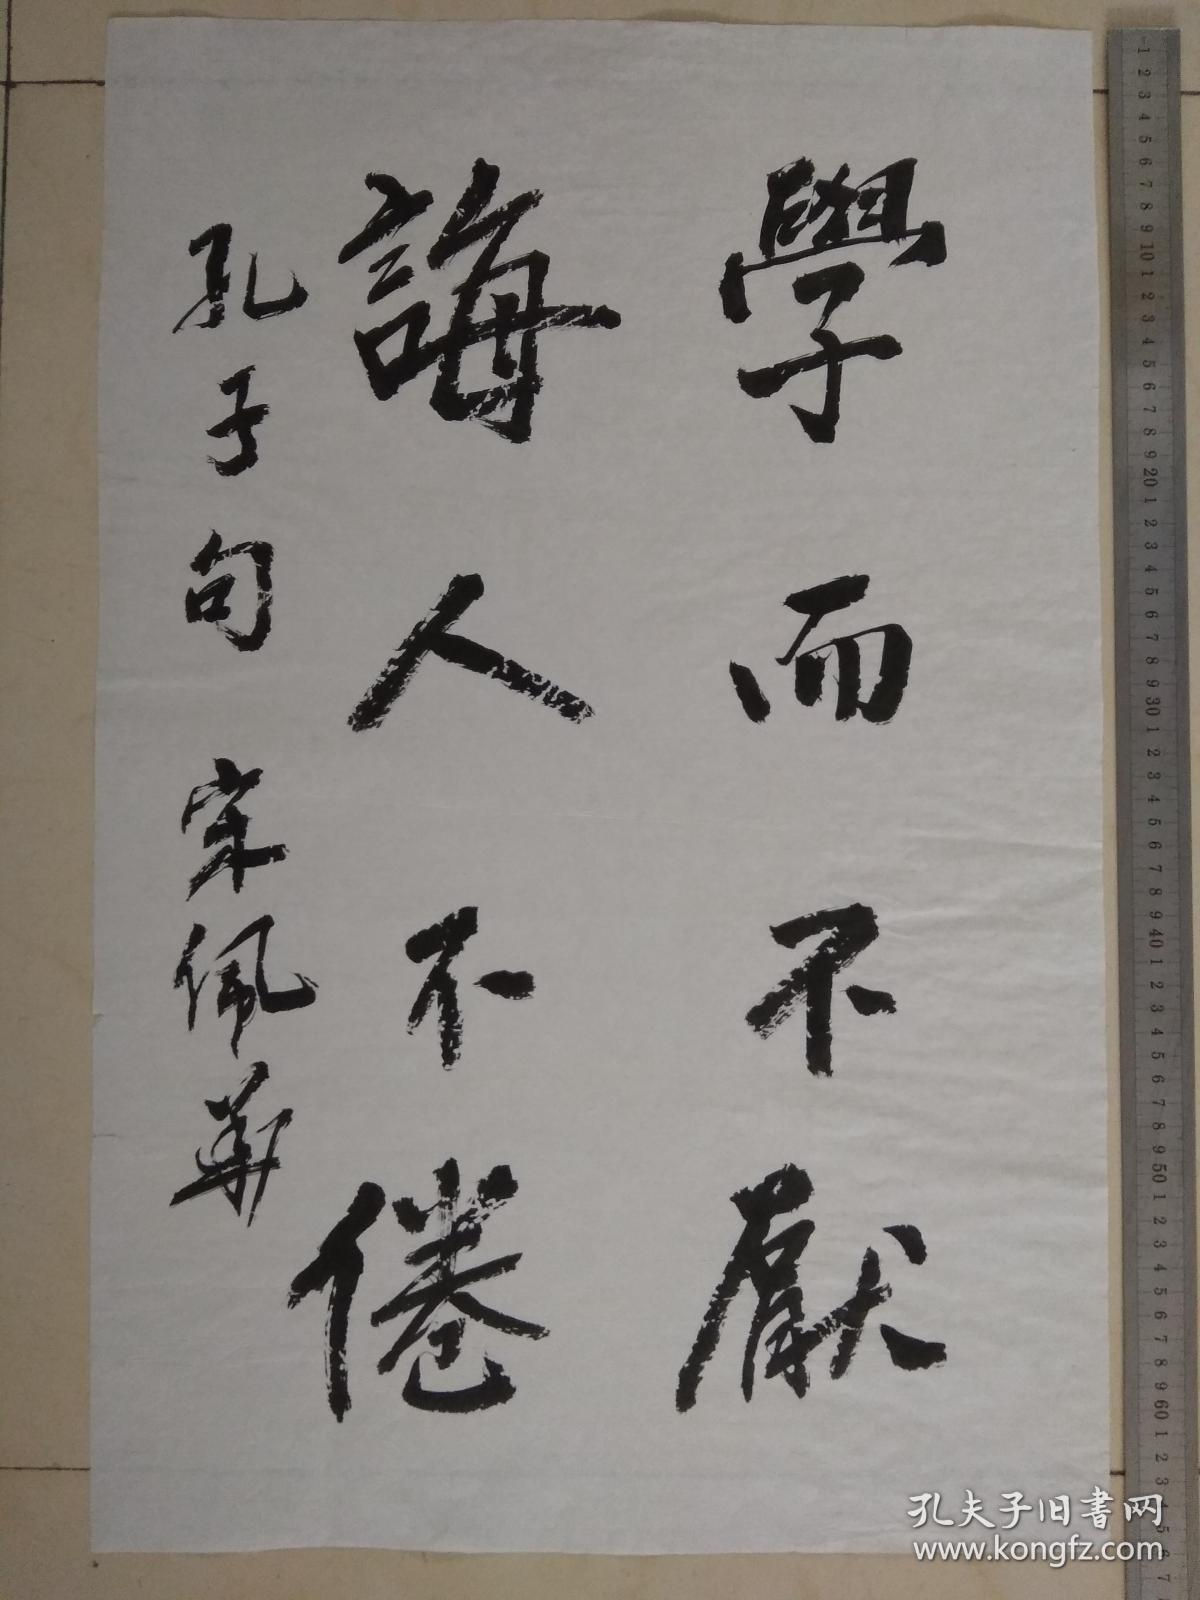 學而不厭
誨人不倦
孔子句 宋佩華
孔夫子旧書网
www.kongfz.com